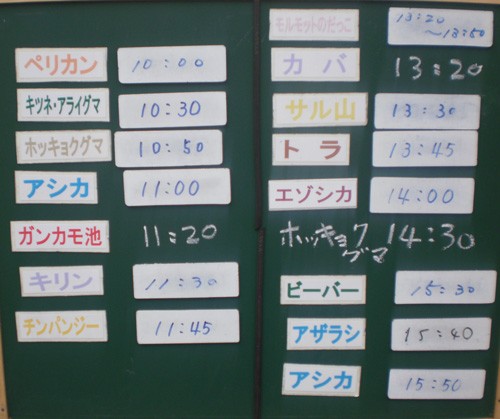 ペリカン 10:00
キツネ・アライグマ 10:30
ホッキョクグマ 10:50
アシカ 11:00
ガンカモ池 11:20
キリン 11:30
チンパンジー 11:45
モルモットのだっこ 13:20
～13:50
カバ 13:20
サル山 13:30
トラ 13:45
エゾシカ 14:00
ホッキョク 14:30
グマ
ビーバー 15:30
アザラシ 15:40
アシカ 15:50